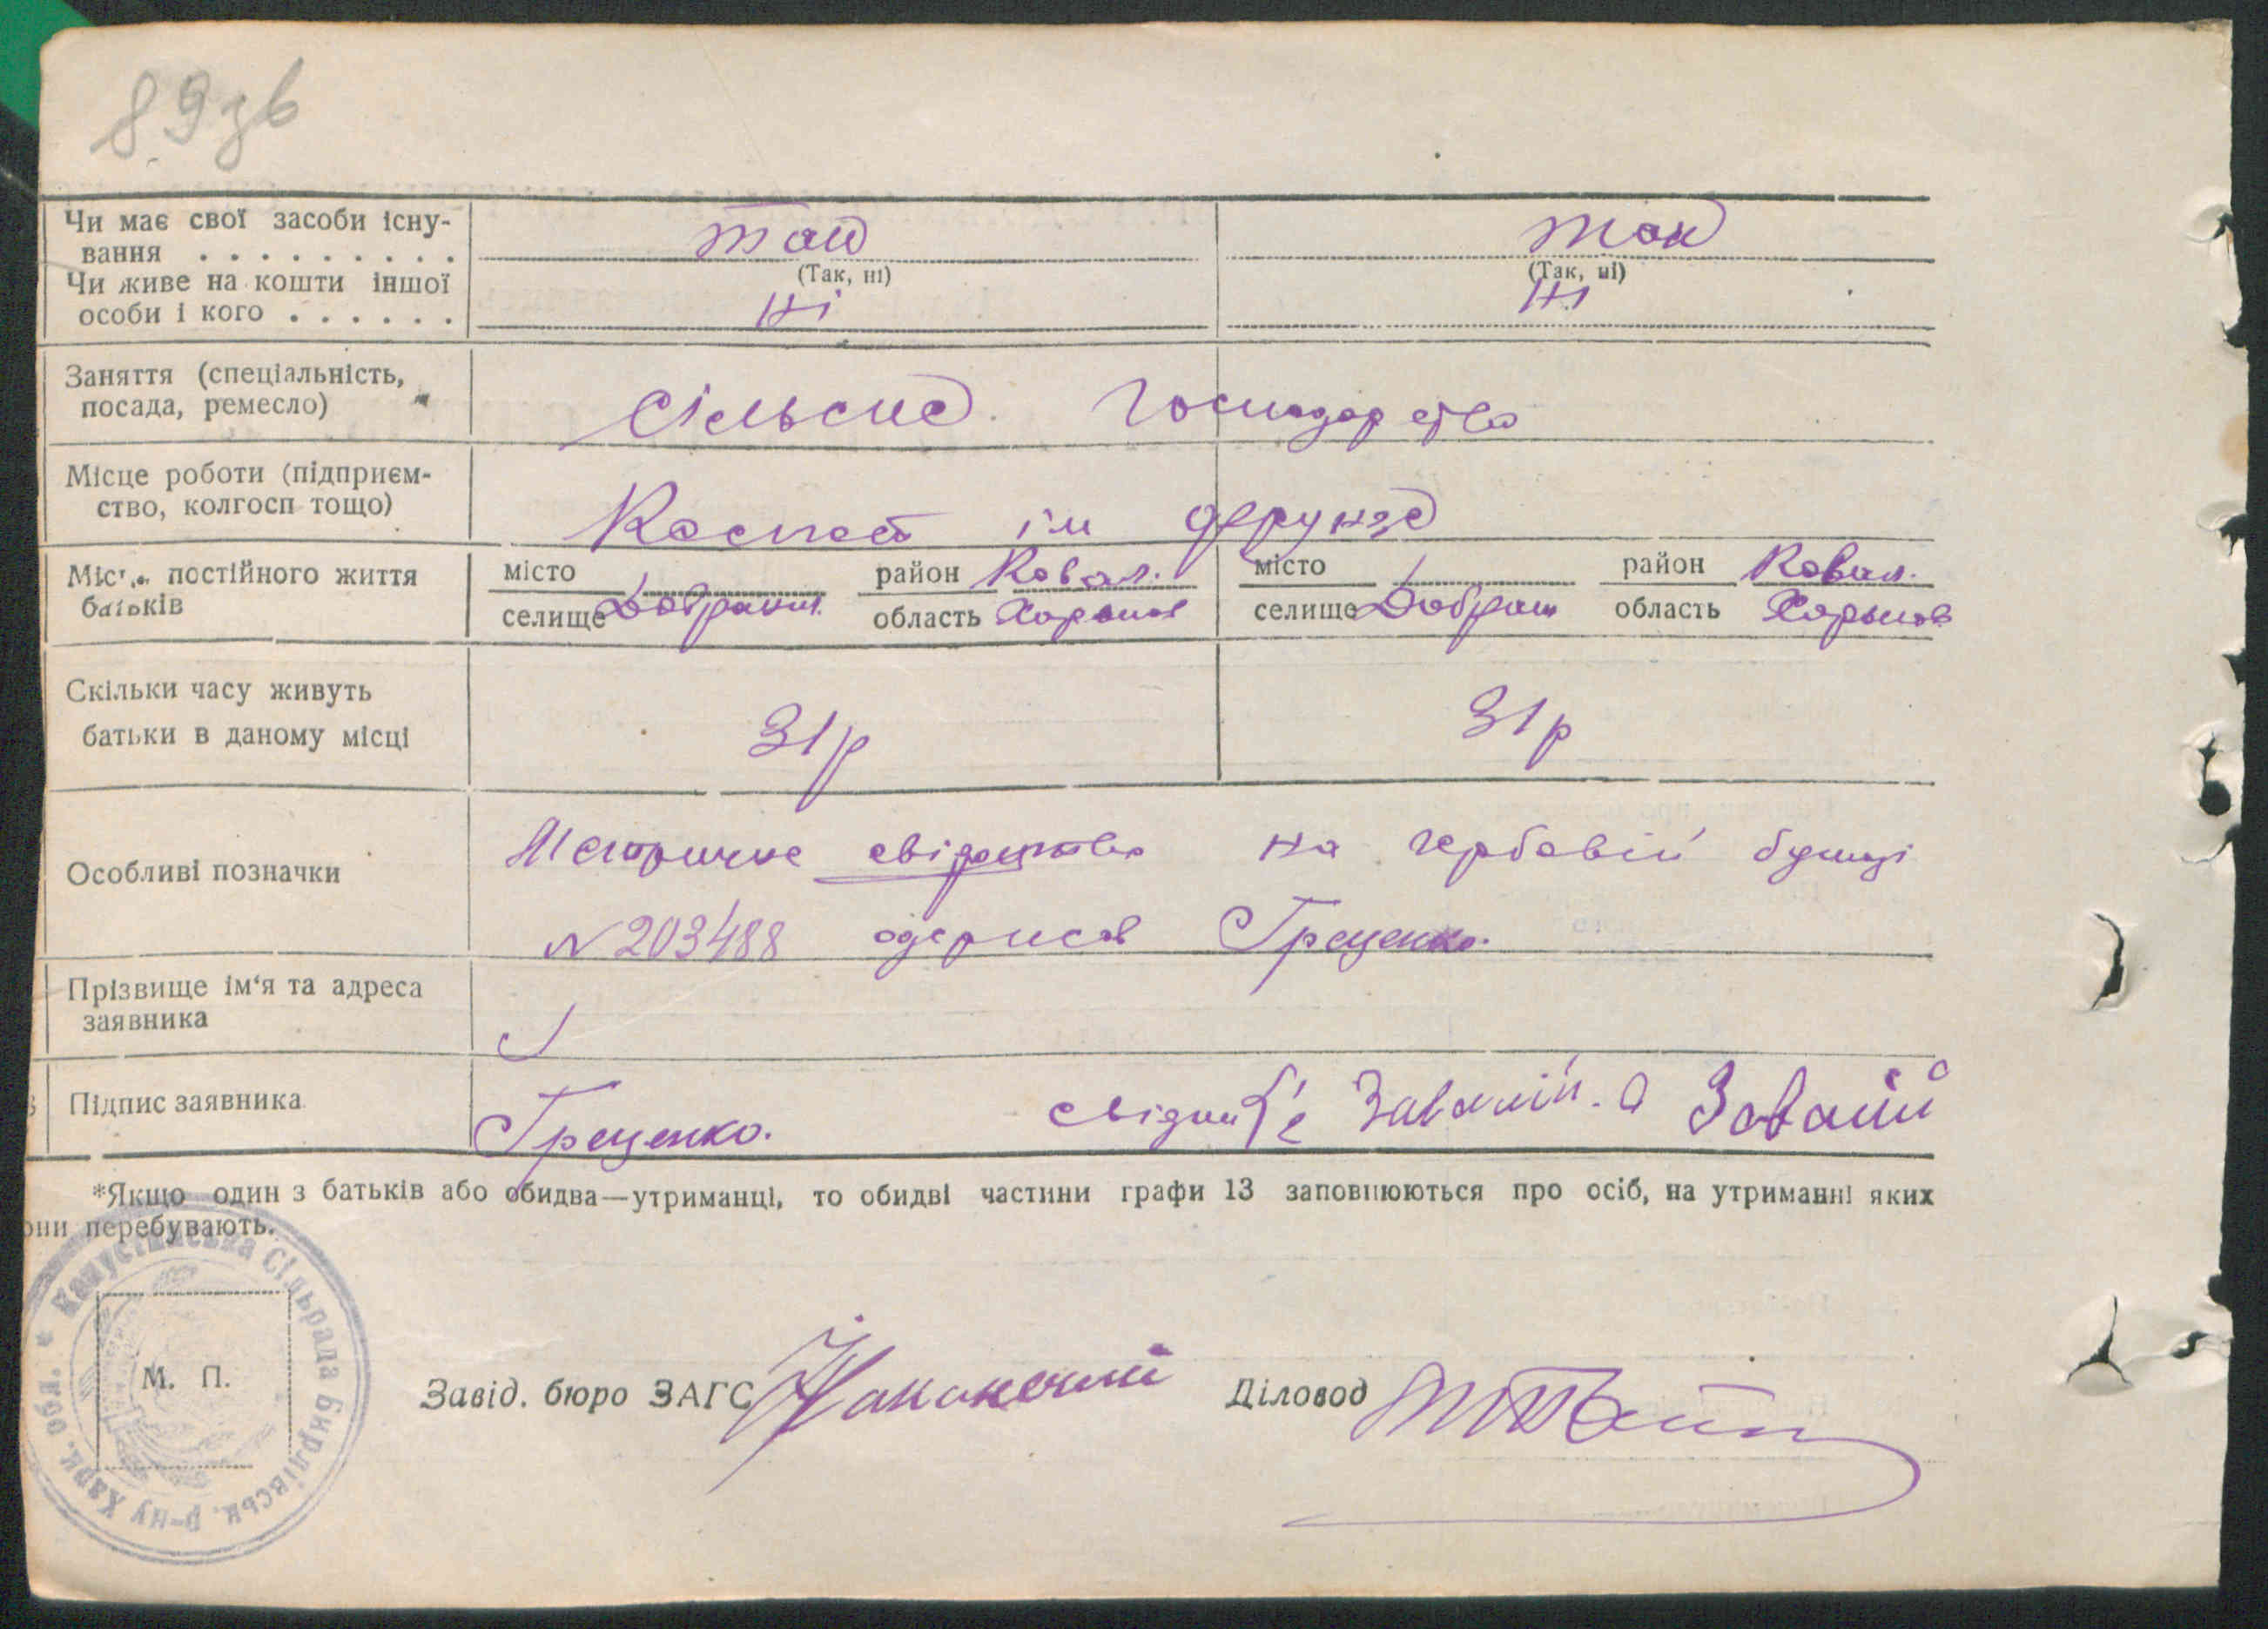 89зв
Чи має свої засоби існу-
вання . . . . . . . . . .
так так
(Так, ні) (Так, ні)
Чи живе на кошти іншої
особи і кого . . . . . .
ні ні
Заняття (спеціальність,
посада, ремесло)
Сільське Господарство
Місце роботи (підприєм-
ство, колгосп тощо)
ім Фрунзе
Місце постійного життя
батьків
місто район Ковал. місто район Ковал.
селище область Харьков селище область Харьков
Скільки часу живуть
батьки в даному місці
31р 31р
Особливі позначки
свідоцтво на гербовій бумазі
N 203488 одержав Греценко.
Прізвище ім‘я та адреса
заявника
Підпис заявника
Греценко. Завалій
*Якщо один з батьків або обидва—утриманці, то обидві частини графи 13 заповнюються про осіб, на утриманні яких
они перебувають.
Капустинська Сільрада Бирлівськ. р-ну Харк. обл.
М. П.
Завід. бюро ЗАГС
Діловод